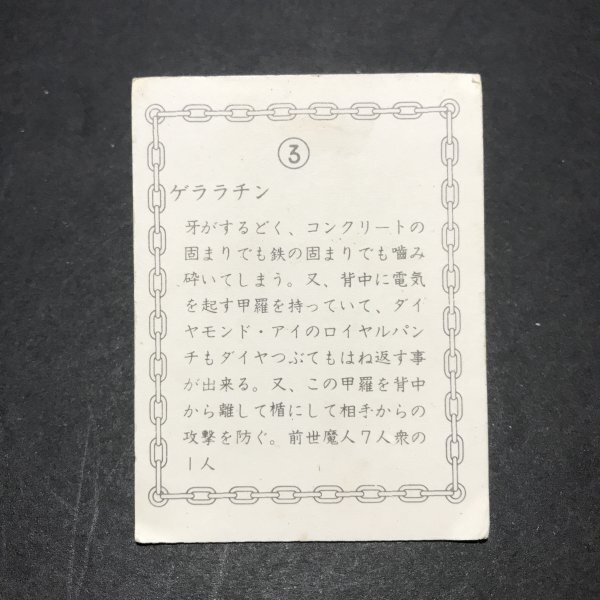 ③
ゲララチン
牙がするどく、コンクリートの
固まりでも鉄の固まりでも嚙み
砕いてしまう。又、背中に電気
を起す甲羅を持っていて、ダイ
ヤモンド・アイのロイヤルパン
チもダイヤつぶてもはね返す事
が出来る。又、この甲羅を背中
から離して楯にして相手からの
攻撃を防ぐ。前世魔人7人衆の
1人